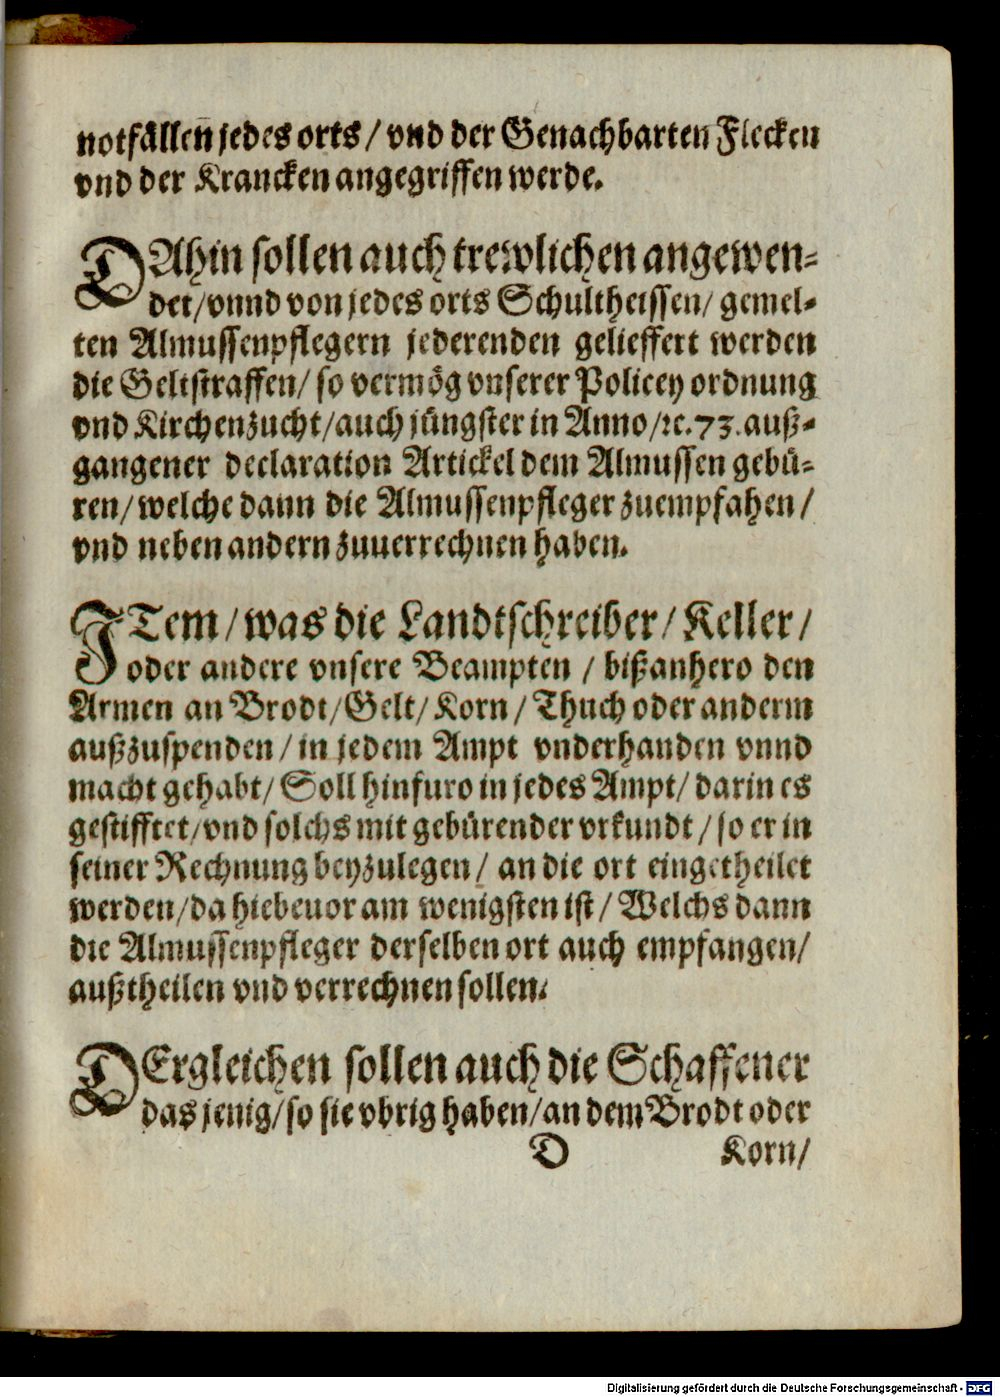 notfällen jedes orts / vnd der Genachbarten Flecken
vnd der Krancken angegriffen werde.
DAhin sollen auch trewlichen angewen-
det / vnnd von jedes orts Schultheissen / gemel-
ten Almussenpflegern jederenden gelieffert werden
die Geltstraffen / so vermög vnserer Policey ordnung
vnd Kirchenzucht / auch jüngster in Anno / ꝛc. 73. auß-
gangener declaration Artickel dem Almussen gebü-
ren / welche dann die Almussenpfleger zuempfahen /
vnd neben andern zuuerrechnen haben.
ITem / was die Landtschreiber / Keller /
oder andere vnsere Beampten / bißanhero den
Armen an Brodt / Gelt / Korn / Thuch oder anderm
außzuspenden / in jedem Ampt vnderhanden vnnd
macht gehabt / Soll hinfuro in jedes Ampt / darin es
gestifftet / vnd solchs mit gebürender vrkundt / so er in
seiner Rechnung beyzulegen / an die ort eingetheilet
werden / da hiebeuor am wenigsten ist / Welchs dann
die Almussenpfleger derselben ort auch empfangen /
außtheilen vnd verrechnen sollen.
DErgleichen sollen auch die Schaffener
das jenig / so sie vbrig haben / an dem Brodt oder
D Korn /
Digitalisierung gefördert durch die Deutsche Forschungsgemeinschaft - DFG